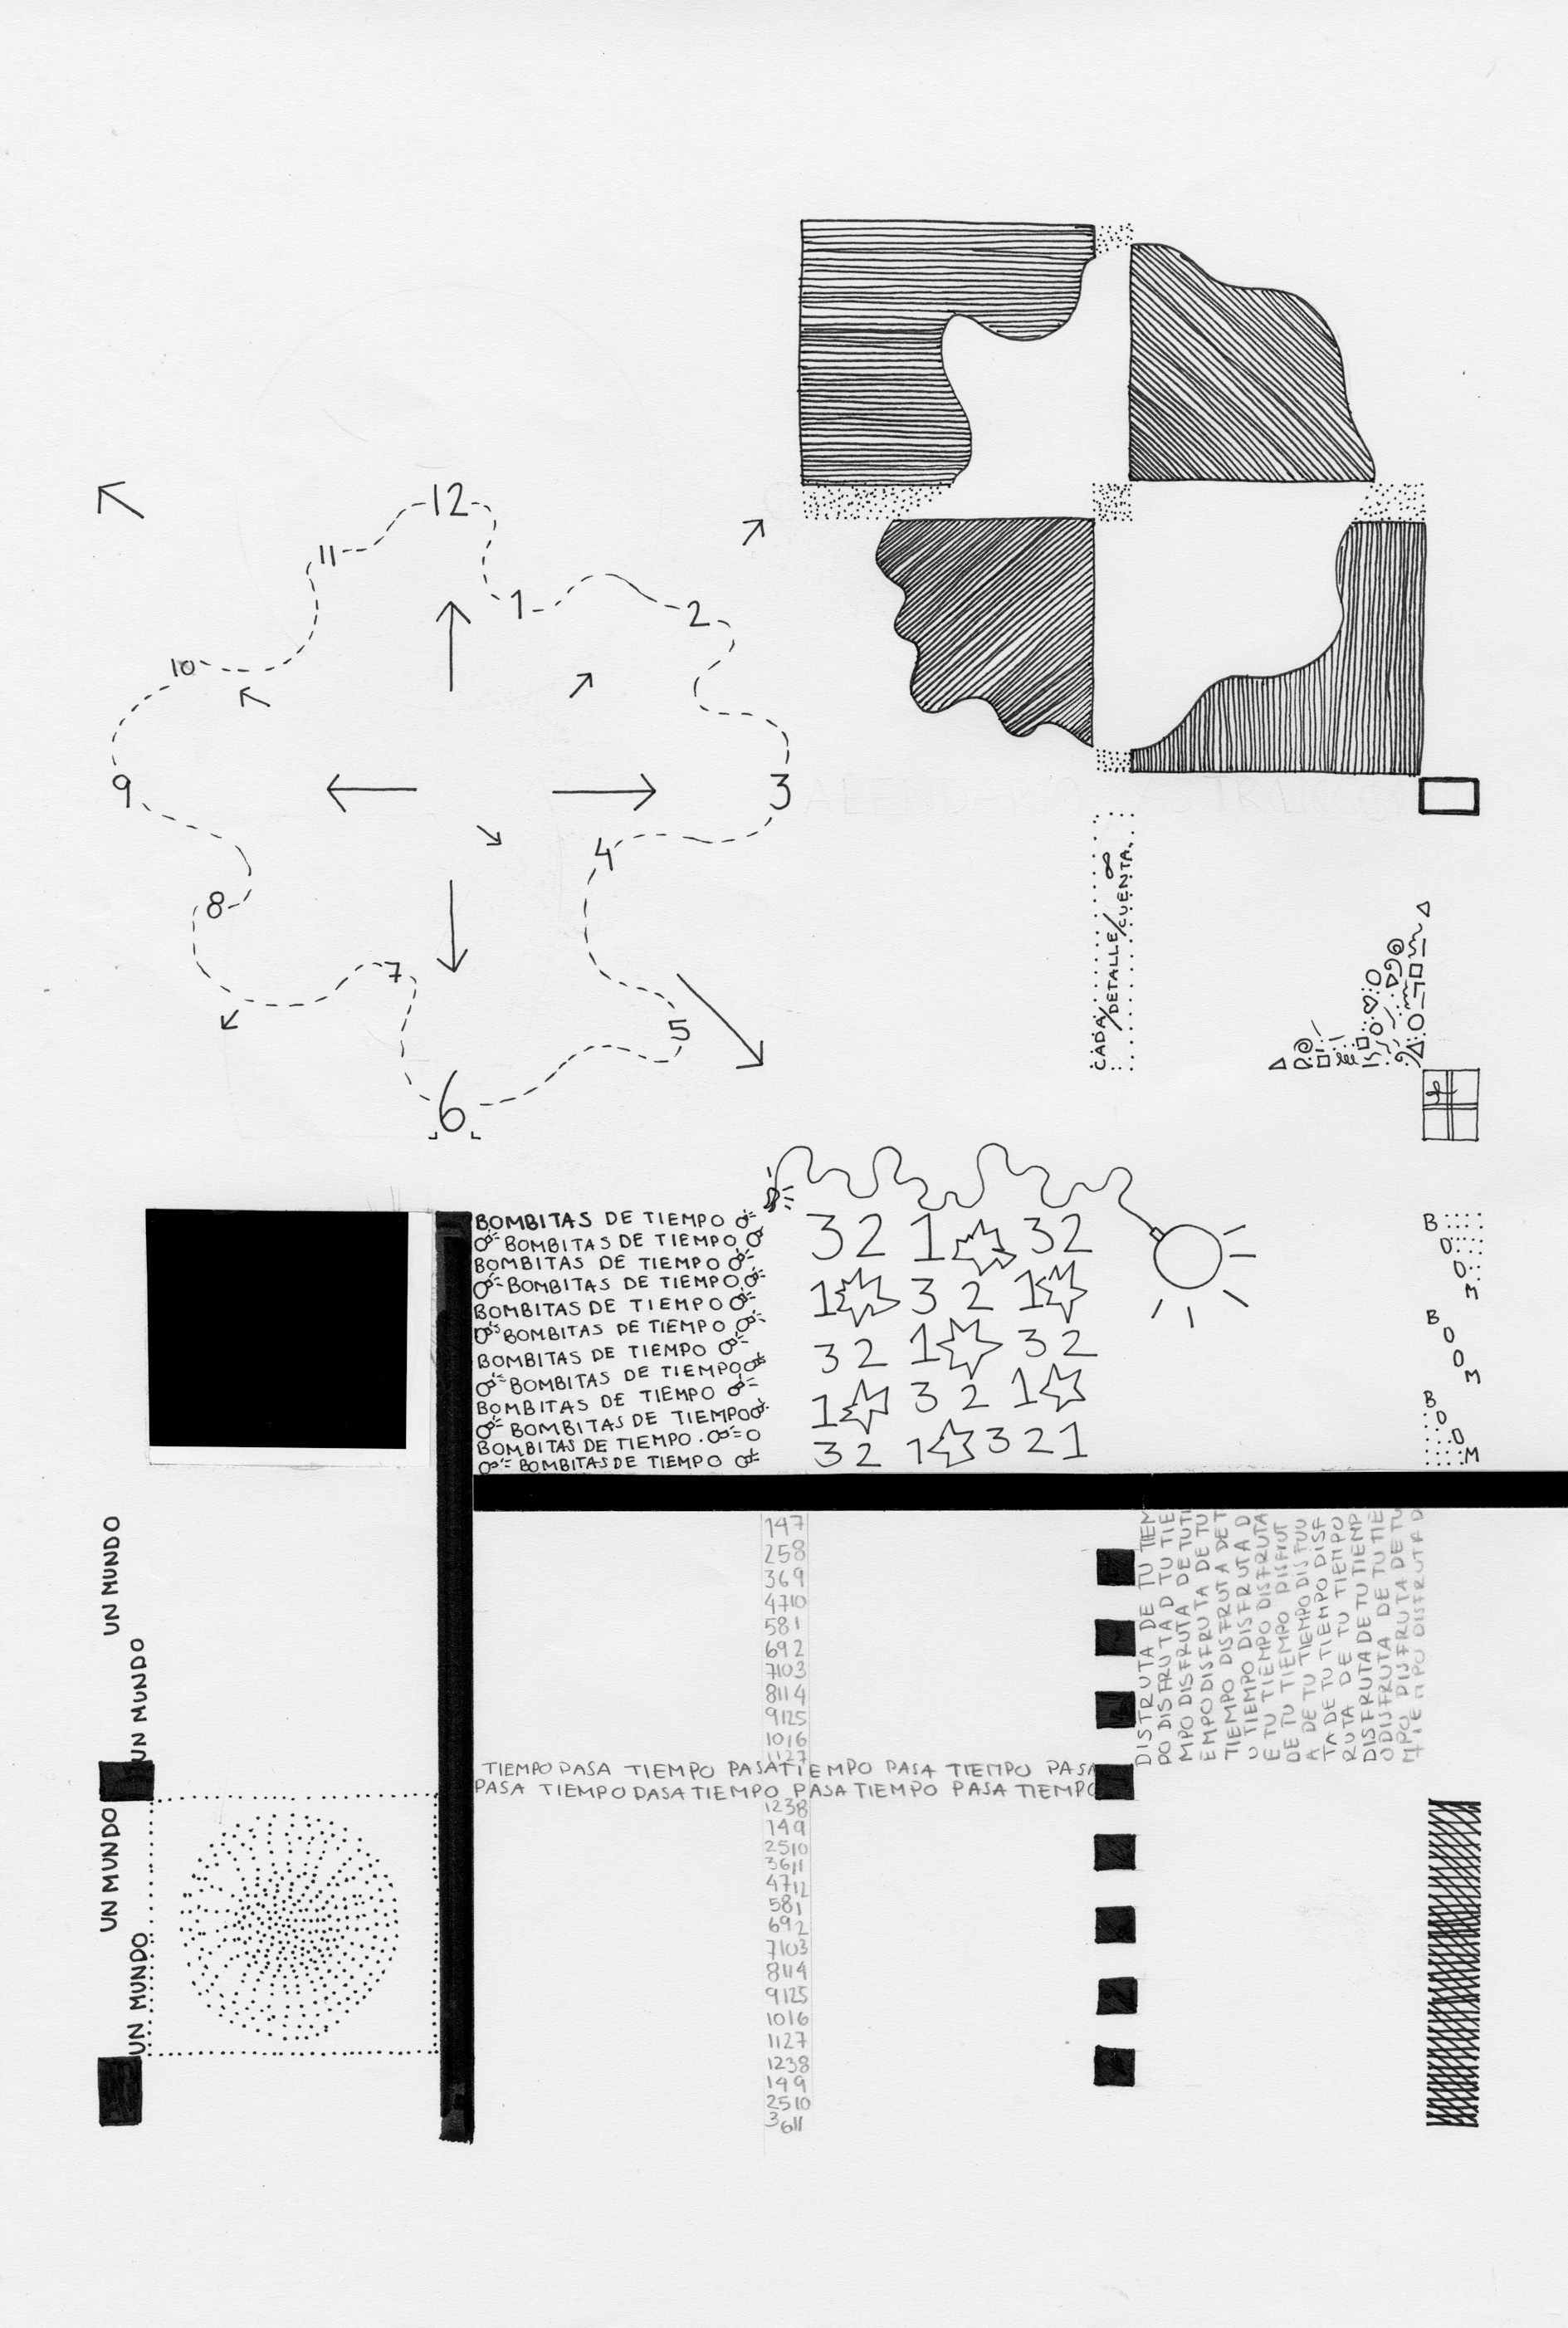 12
11
1
2
10
9
3
4
8
7
5
6
CADA/DETALLE/CUENTA.
BOMBITAS DE TIEMPO
BOMBITAS DE TIEMPO
BOMBITAS DE TIEMPO
BOMBITAS DE TIEMPO
BOMBITAS DE TIEMPO
BOMBITAS DE TIEMPO
BOMBITAS DE TIEMPO
BOMBITAS DE TIEMPO
BOMBITAS DE TIEMPO
BOMBITAS DE TIEMPO
BOMBITAS DE TIEMPO.
BOMBITAS DE TIEMPO
3 2 1 3 2
1 3 2 1
3 2 1 3 2
1 3 2 1
3 2 1 3 2 1
BOOM
BOOM
BOOM
UN MUNDO
UN MUNDO
UN MUNDO
UN MUNDO
147
258
369
4710
581
692
7103
8114
9125
1016
1127
TIEMPO PASA TIEMPO PASA TIEMPO PASA TIEMPO PASA
PASA TIEMPO PASA TIEMPO PASA TIEMPO PASA TIEMPO
1238
149
2510
3611
4712
581
692
7103
8114
9125
1016
1127
1238
149
2510
3611
DISTRUTA DE TU TIEM
PO DISFRUTA D TU TIE
MPO DISFRUTA DE TU TI
EMPO DISFRUTA DE TU
TIEMPO DISFRUTA DE T
U TIEMPO DISFRUTA D
E TU TIEMPO DISFRUTA
DE TU TIEMPO DISFRUT
A DE TU TIEMPO DISFUU
TA DE TU TIEMPO DISF
RUTA DE TU TIEMPO
DISFRUTA DE TU TIEMP
O DISFRUTA DE TU TIE
MPO DISFRUTA DE TU
TIEMPO DISFRUTA D